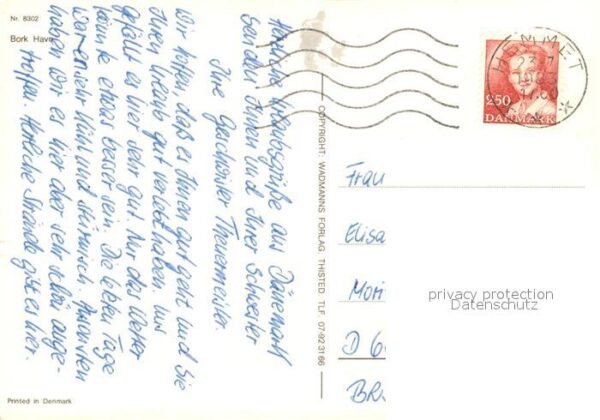 Nr. 8302
Bork Havn
Herzliche Urlaubsgrüße aus Dänemark
senden Ihnen und Ihrer Schwester
Ihre Geschwister
Wir hoffen, daß es Ihnen gut geht und Sie
Ihren Urlaub gut verlebt haben. Uns
gefällt es hier sehr gut. Nur das Wetter
könnte etwas besser sein. Die letzten Tage
war es hier kühl und stürmisch. Ansonsten
haben wir es hier aber sehr schön ange-
troffen. Herrliche Strände gibt es hier.
Printed in Denmark
COPYRIGHT: WADMANNS FORLAG THISTED TLF 07-92 31 66
HEMMET
23.7
250
DANMARK
Frau
Elisa
Mori
D 6
BR
privacy protection
Datenschutz